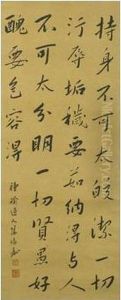 持身不可太皎潔一切
汙辱垢穢要茹納得與人
不可太分明一切賢愚好
醜要包容得
種榆道人